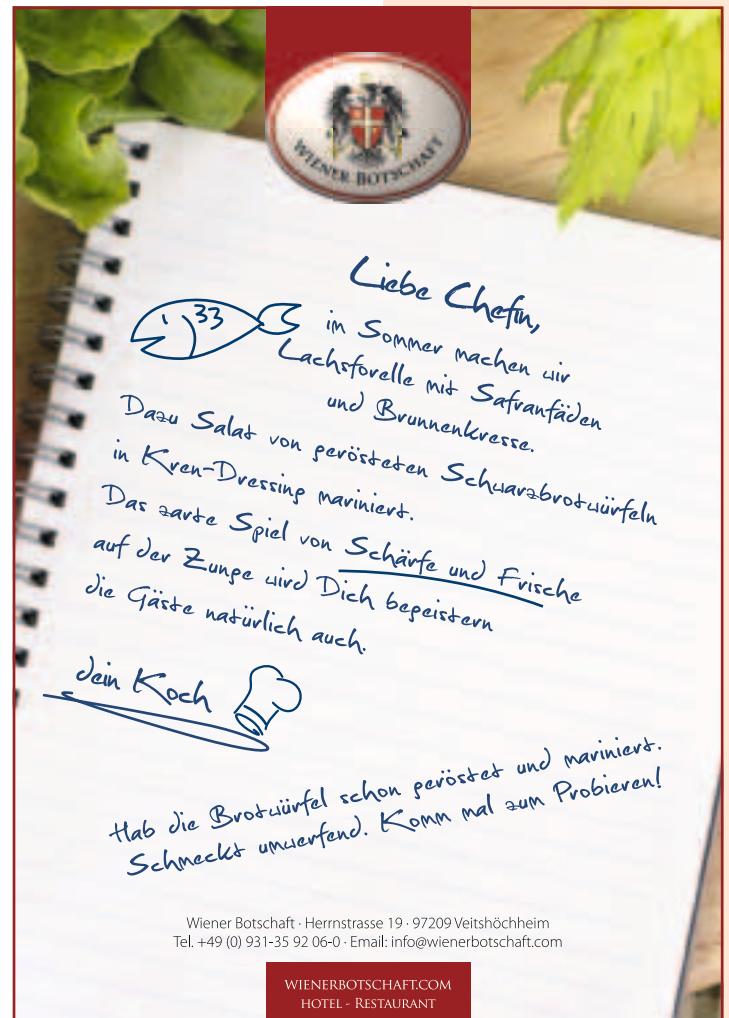 WIENER BOTSCHAFT
Liebe Chefin,
33
im Sommer machen wir
Lachsforelle mit Safranfäden
und Brunnenkresse.
Dazu Salat von gerösteten Schwarzbrotwürfeln
in Kren-Dressing mariniert.
Das zarte Spiel von Schärfe und Frische
auf der Zunge wird Dich begeistern
die Gäste natürlich auch.
dein Koch
Hab die Brotwürfel schon geröstet und mariniert.
Schmeckt umwerfend. Komm mal zum Probieren!
Wiener Botschaft · Herrnstrasse 19 · 97209 Veitshöchheim
Tel. +49 (0) 931-35 92 06-0 · Email: info@wienerbotschaft.com
WIENERBOTSCHAFT.COM
HOTEL - RESTAURANT